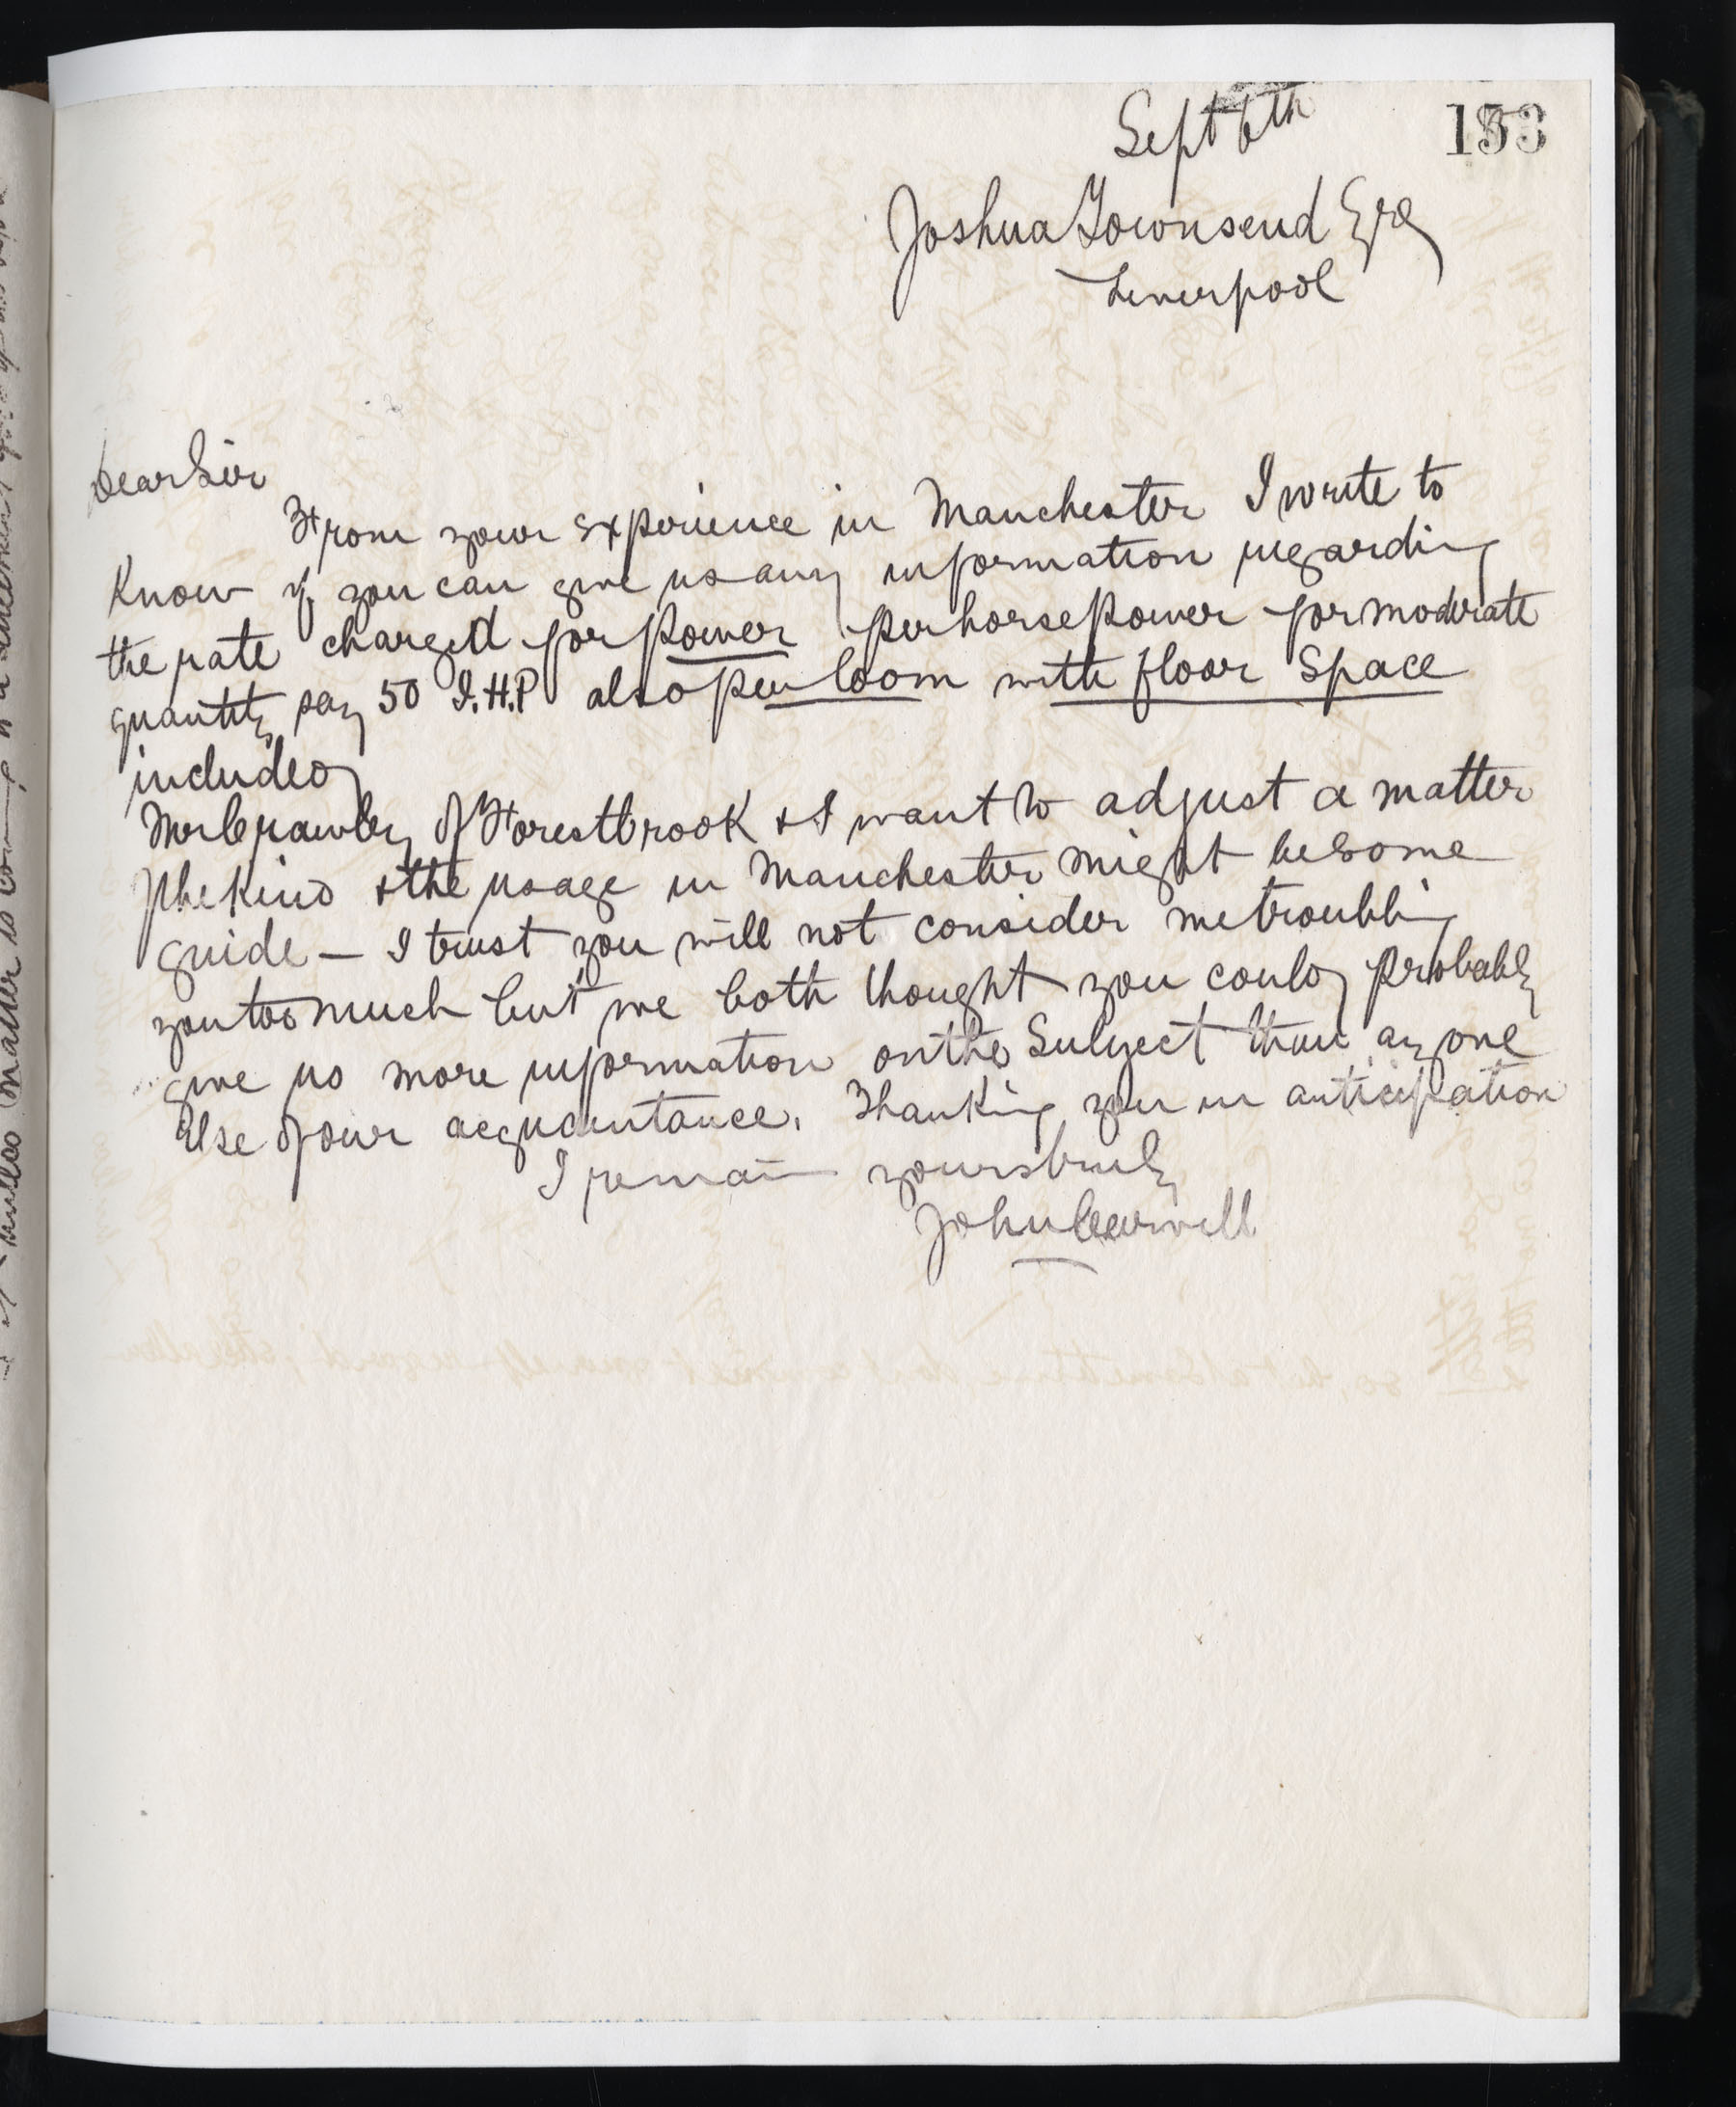 Sept 6th
153
Joshua Townsend Esq
Liverpool
Dear Sir
From your experience in Manchester I write to
Know if you can give us any information regarding
the rate charged for power per horse power for moderate
quantity say 50 I.H.P also per loom with floor space
included
Mr Crawley of Forestbrook & I want to adjust a matter
of the kind & the usage in Manchester might be some
guide — I trust you will not consider me troubling
you too much but we both thought you could probably
give us more information on the Subject than any one
Else of our acquaintance. Thanking you in anticipation
I remain yours truly
John